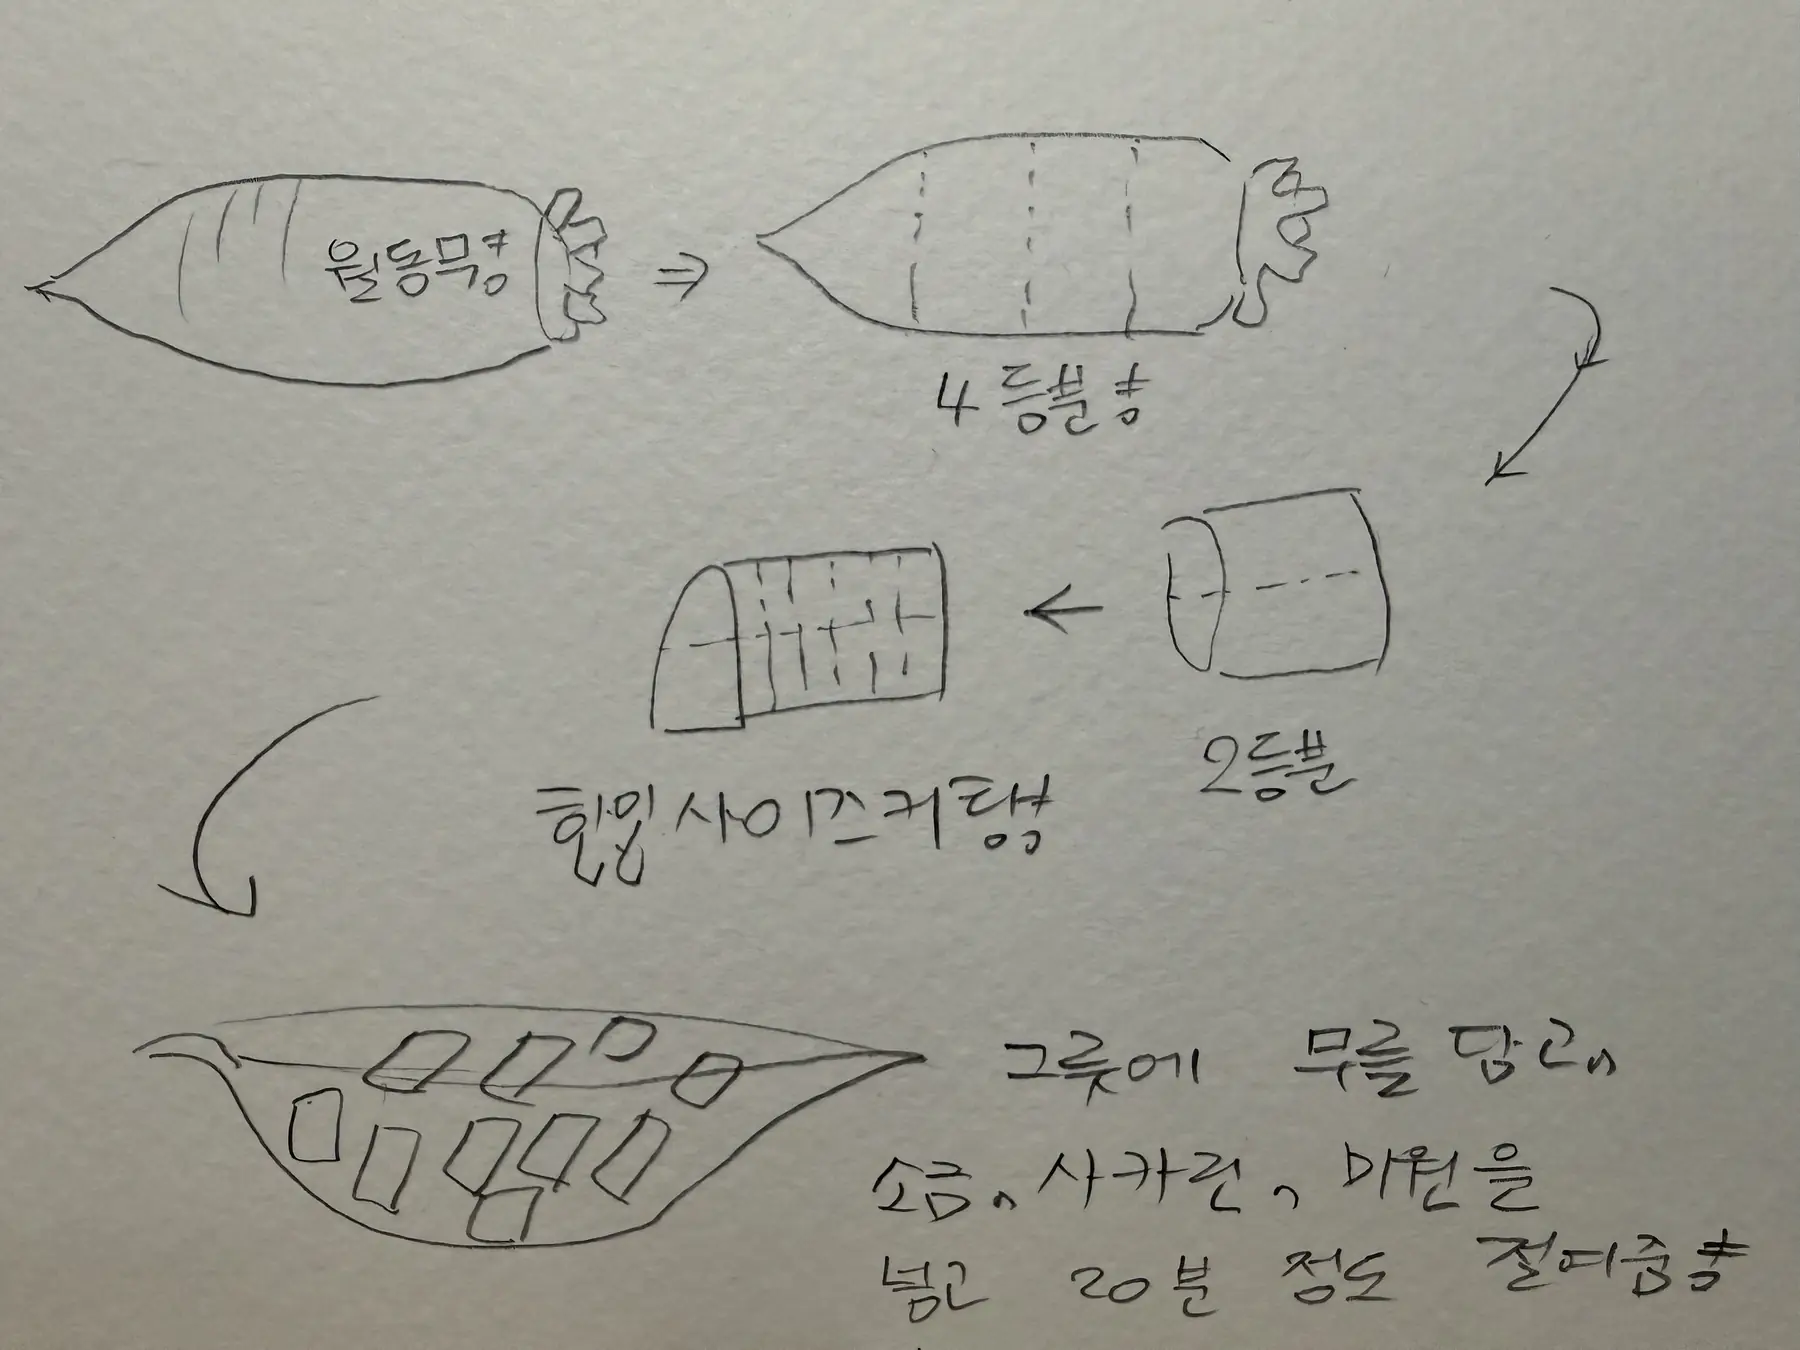 월동무향
4등분향
2등분
한입사이즈커팅향
그릇에 무를 담고,
소금, 사카린, 미원을
넣고 20분 정도 절여줍향